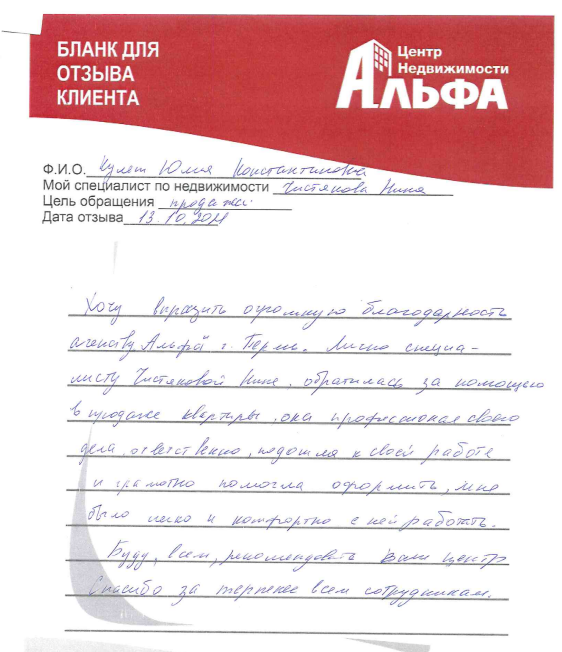 БЛАНК ДЛЯ
ОТЗЫВА
КЛИЕНТА
Центр
Недвижимости
АЛЬФА
Ф.И.О. Кулеш Юлия Константиновна
Мой специалист по недвижимости Чистякова Нина
Цель обращения продажа.
Дата отзыва 13.10.2021
Хочу выразить огромную благодарность
агенству Альфа г. Пермь. Лично специа-
листу Чистяковой Нине, обратилась за помощью
в продаже квартиры, она професионал своего
дела, ответственно, подошла к своей работе
и грамотно помогла оформить, мне
было легко и комфортно с ней работать.
Буду, всем, рекомендовать ваш центр
Спасибо за терпение всем сотрудникам.